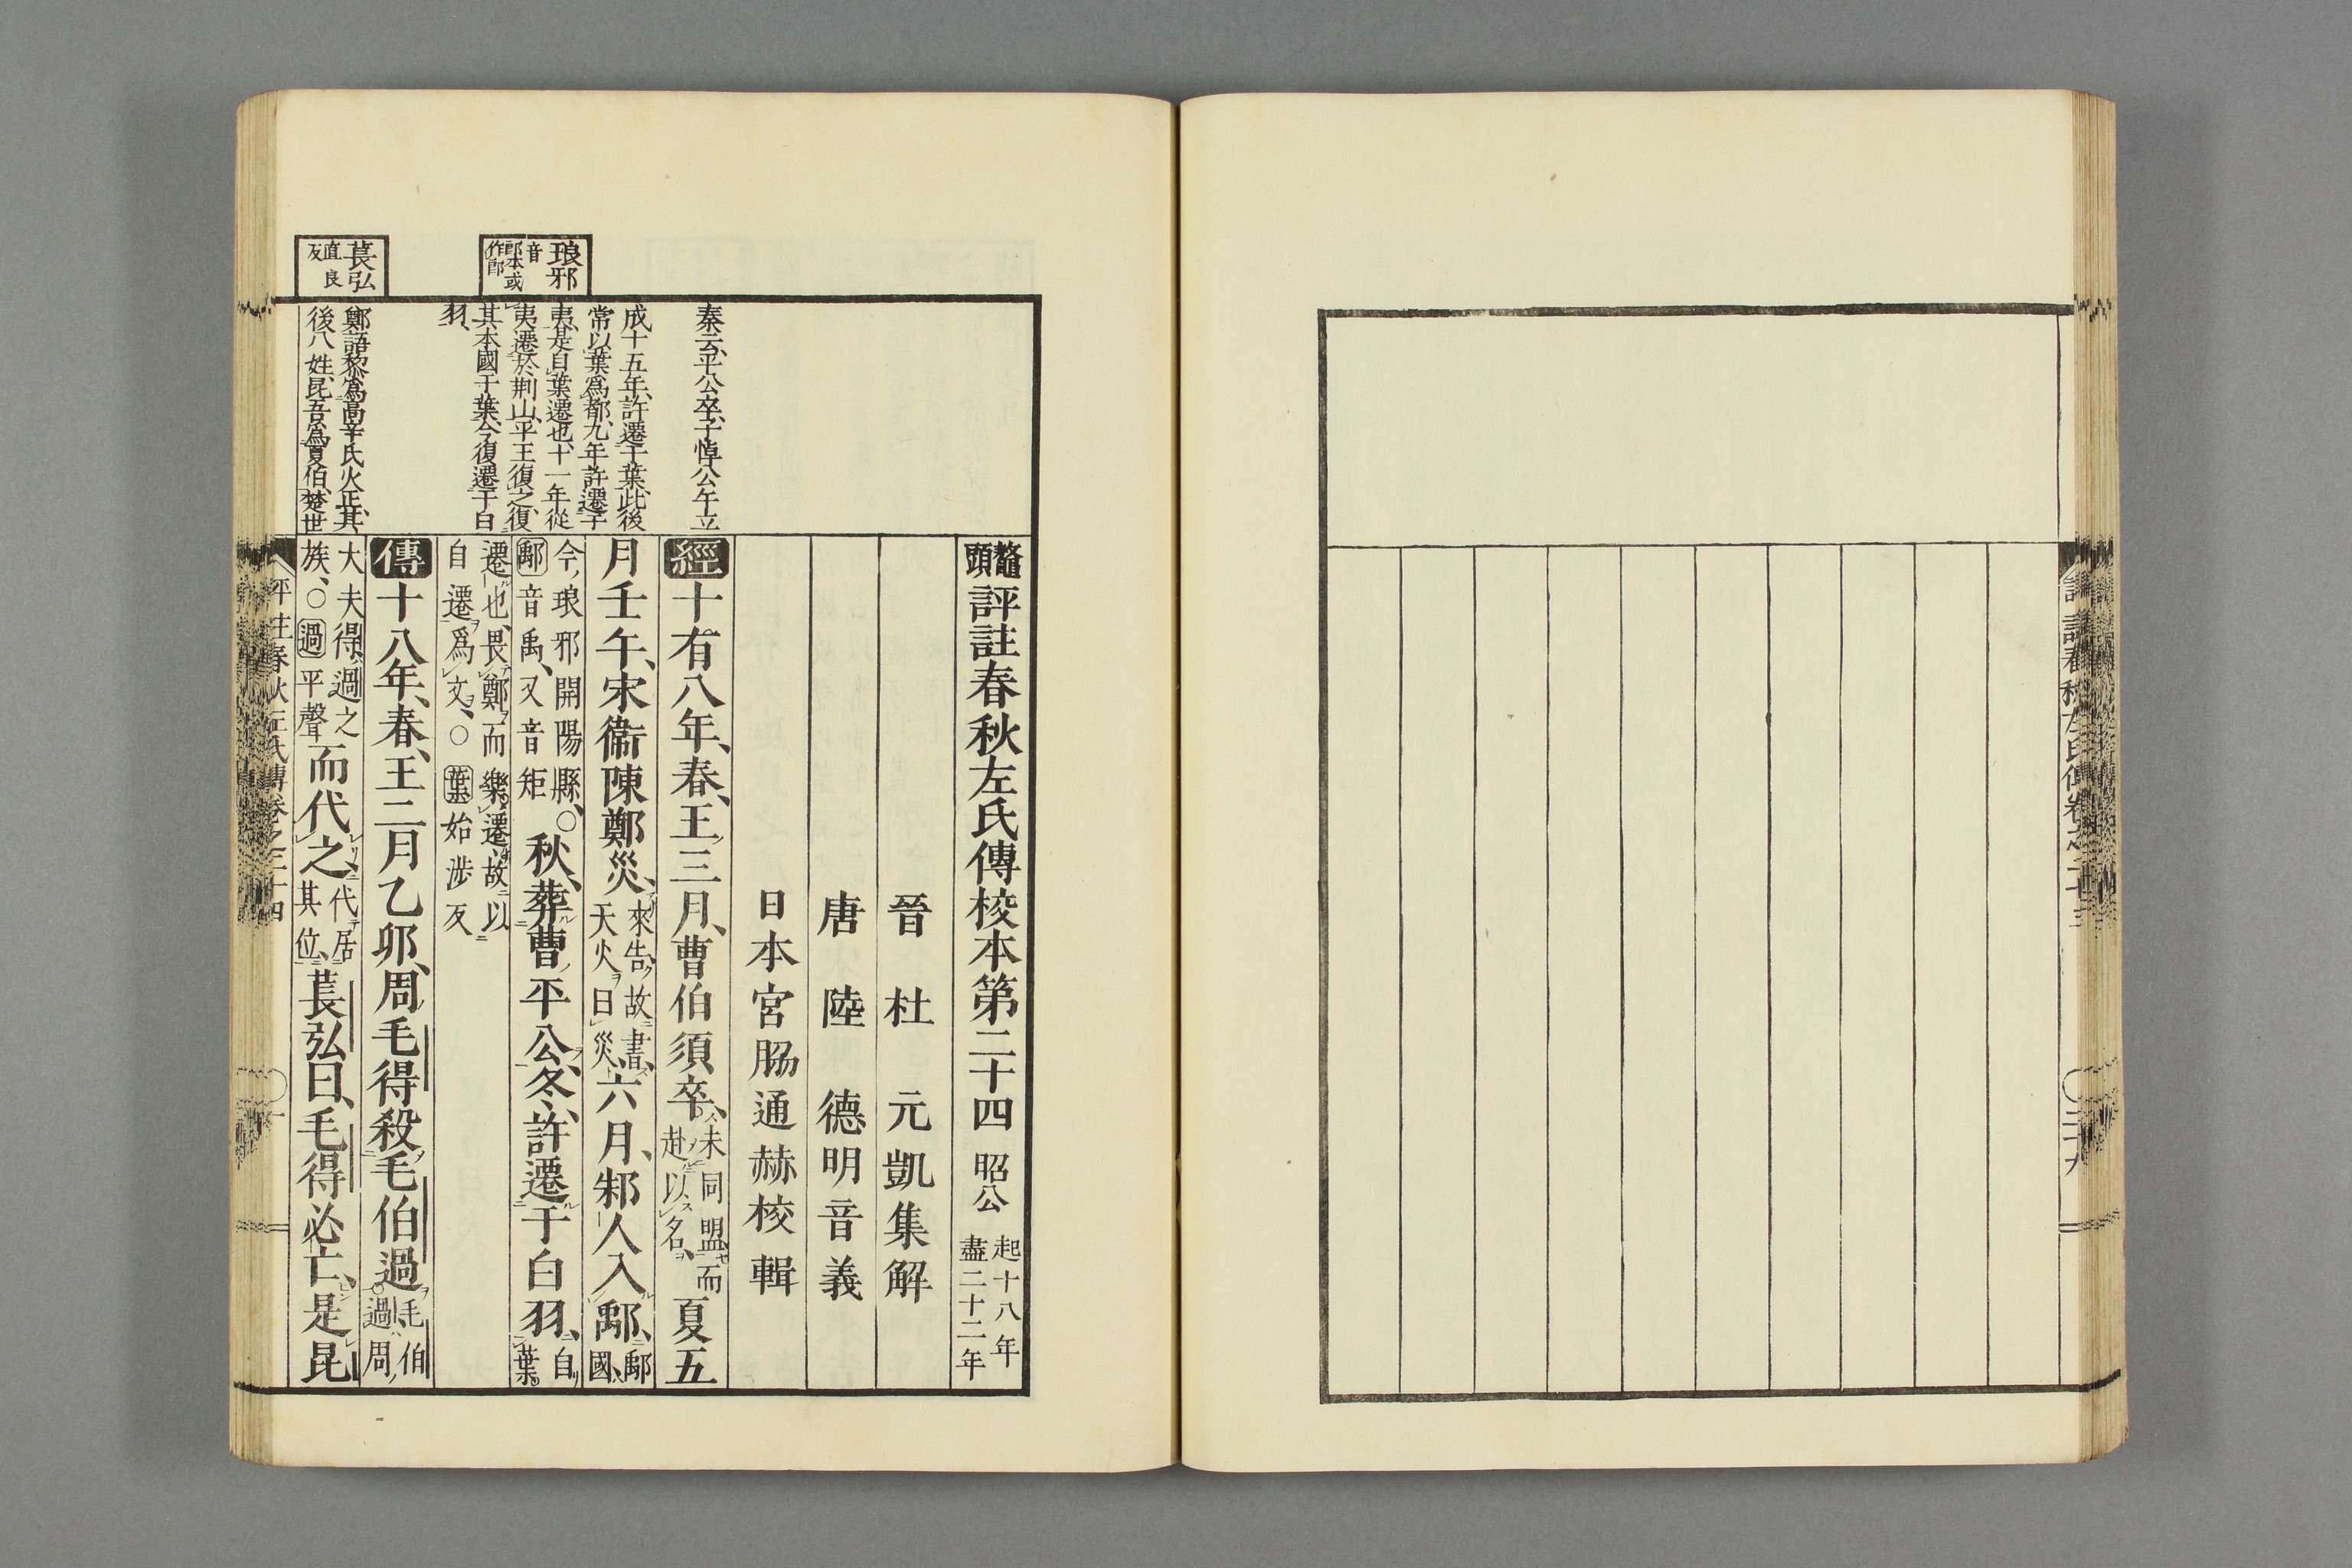 鼇頭評註春秋左氏傳校本第二十四 昭公 起十八年盡二十二年
晉 杜 元凱集解
唐 陸 德明音義
日本宮脇通赫校輯
經十有八年、春、王三月、曹伯須卒、未同盟而赴以名、夏五
月壬午、宋衞陳鄭災、來告、故書、天火曰災、六月、邾人入鄅、鄅國、
今琅邪開陽縣、○鄅音禹、又音矩 秋、葬曹平公、冬、許遷于白羽、自葉
遷也、畏鄭而樂遷、故以自遷爲文、○葉始涉反
傳十八年、春、王二月乙卯、周毛得殺毛伯過、毛伯過周
大夫得過之族、○過平聲 而代之、代居其位、萇弘曰、毛得必亡、是昆
秦云、平公卒、子悼公午立
成十五年、許遷于葉、此後
常以葉爲都、九年許遷于
夷、是自葉遷也、十一年從
夷遷於荆山、平王復之、復
其本國于葉、今復遷于白
羽、
鄭語黎爲高辛氏火正、其
後八姓、昆吾爲夏伯、楚世
琅邪 音郎本或作郎
萇弘 直良反
評註春秋左氏傳卷之二十四